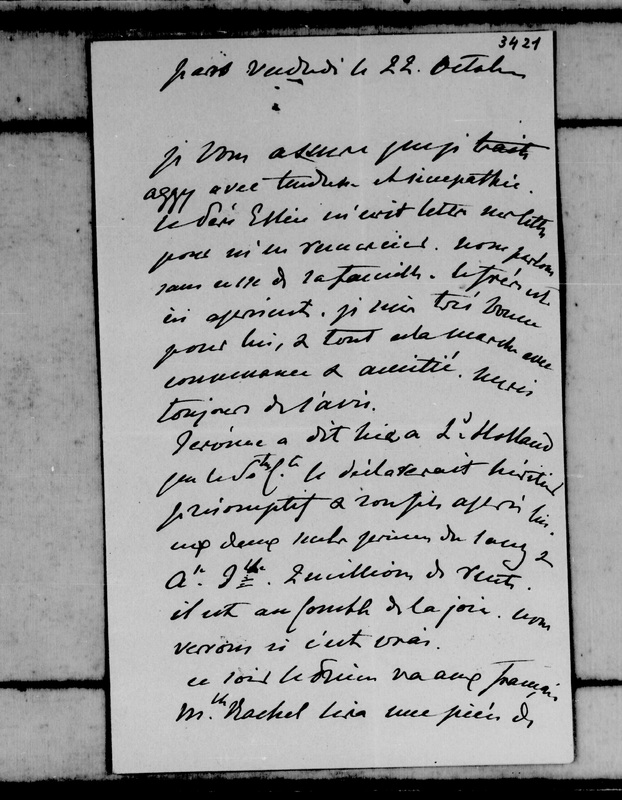 3421
paris vendredi le 22. Octobre
je vous assure que je traite
aggy avec tendresse et sympathie.
le père Ellice m'ecrit lettre sur lettre
pour m'en remercier. nous parlons
sans cesse de sa famille. le frère est
ici à présent. je suis très bonne
pour lui, & tout cela marche avec
convenance & amitié. merci
toujours de l'avis.
Jérôme a dit hier a Ld Holland
que le le déclarerait héritier
présomptif & son fils après lui.
eux deux seuls princes du sang &
A. I. 2 millions de rente.
il est au comble de la joie. nous
verrons si c'est vrai.
ce soir le Prince va aux français
Mlle Rachel lira une pièce de